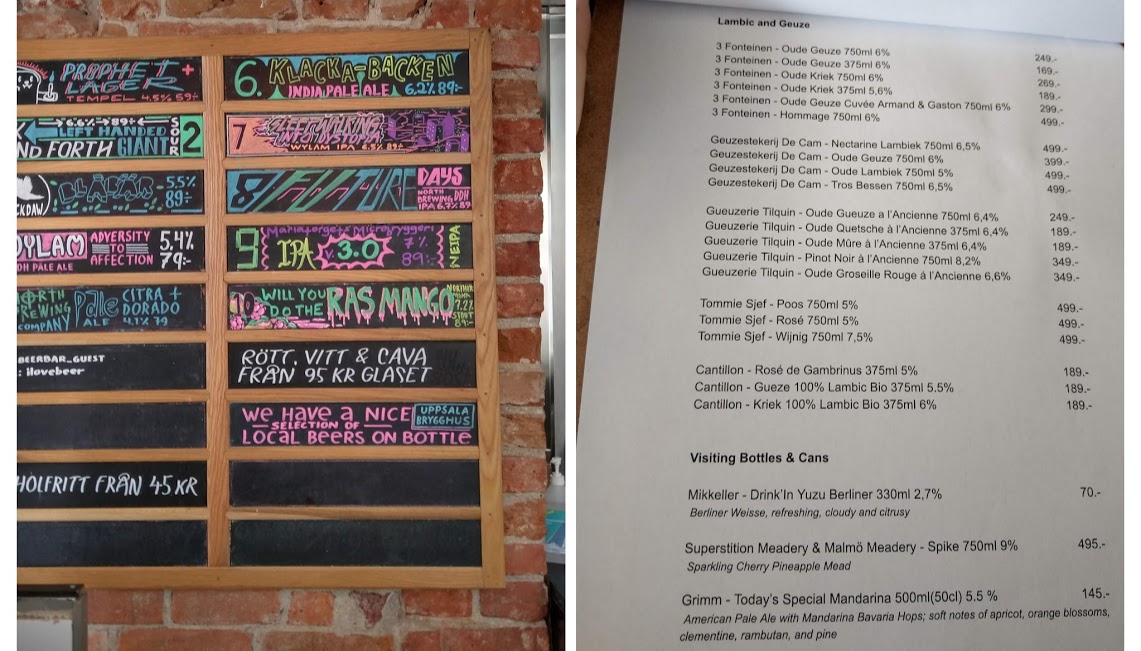 PROPHET +
LAGER
TEMPEL 4.5% 59:-
← 6.6% → 89:-
LEFT HANDED
ND FORTH GIANT
SOUR
2
BLÅBÄR 5.5%
89:-
CKDAW
WYLAM ADVERSITY TO AFFECTION 5,4%
79:-
OH PALE ALE
NORTH
BREWING
COMPANY
PALE
ALE
CITRA +
DORADO
4.1% 79
BEERBAR_GUEST
: ilovebeer
HOLFRITT FRÅN 45 KR
6. KLACKA-BACKEN
INDIA PALE ALE 6.2% 89:-
7 SLEEPWALKING
INTO DYSTOPIA
WYLAM IPA 6.5% 89:-
8 FUTURE DAYS
NORTH
BREWING DDH
IPA 6.7% 89
9 Mariaforgets Microbryggeri
IPA v. 3.0 7%
89:-
NEIPA
10 WILL YOU
DO THE RAS MANGO
7.2%
STOUT
89:-
RÖTT, VITT & CAVA
FRÅN 95 KR GLASET
We Have a NICE
SELECTION OF
LOCAL BEERS ON BOTTLE
UPPSALA
BRYGGHUS
Lambic and Geuze
3 Fonteinen - Oude Geuze 750ml 6% 249.-
3 Fonteinen - Oude Geuze 375ml 6% 169.-
3 Fonteinen - Oude Kriek 750ml 6% 269.-
3 Fonteinen - Oude Kriek 375ml 5,6% 189.-
3 Fonteinen - Oude Geuze Cuvée Armand & Gaston 750ml 6% 299.-
3 Fonteinen - Hommage 750ml 6% 499.-
Geuzestekerij De Cam - Nectarine Lambiek 750ml 6,5% 499.-
Geuzestekerij De Cam - Oude Geuze 750ml 6% 399.-
Geuzestekerij De Cam - Oude Lambiek 750ml 5% 499.-
Geuzestekerij De Cam - Tros Bessen 750ml 6,5% 499.-
Gueuzerie Tilquin - Oude Gueuze a l'Ancienne 750ml 6,4% 249.-
Gueuzerie Tilquin - Oude Quetsche à l'Ancienne 375ml 6,4% 189.-
Gueuzerie Tilquin - Oude Mûre à l'Ancienne 375ml 6,4% 189.-
Gueuzerie Tilquin - Pinot Noir à l'Ancienne 750ml 8,2% 349.-
Gueuzerie Tilquin - Oude Groseille Rouge à l'Ancienne 6,6% 349.-
Tommie Sjef - Poos 750ml 5% 499.-
Tommie Sjef - Rosé 750ml 5% 499.-
Tommie Sjef - Wijnig 750ml 7,5% 499.-
Cantillon - Rosé de Gambrinus 375ml 5% 189.-
Cantillon - Gueze 100% Lambic Bio 375ml 5.5% 189.-
Cantillon - Kriek 100% Lambic Bio 375ml 6% 189.-
Visiting Bottles & Cans
Mikkeller - Drink'In Yuzu Berliner 330ml 2,7% 70.-
Berliner Weisse, refreshing, cloudy and citrusy
Superstition Meadery & Malmö Meadery - Spike 750ml 9% 495.-
Sparkling Cherry Pineapple Mead
Grimm - Today's Special Mandarina 500ml(50cl) 5.5 % 145.-
American Pale Ale with Mandarina Bavaria Hops; soft notes of apricot, orange blossoms,
clementine, rambutan, and pine